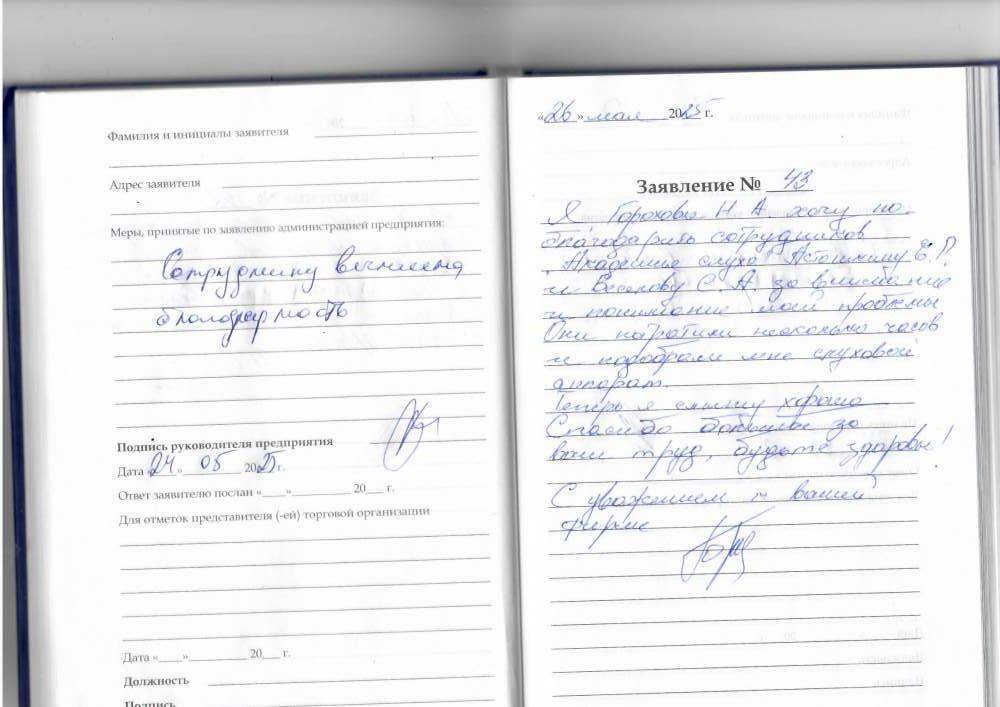 Фамилия и инициалы заявителя
Адрес заявителя
Меры, принятые по заявлению администрацией предприятия:
Сотруднику вынесена
благодарность
Подпись руководителя предприятия
Дата «24» 05 2025 г.
Ответ заявителю послан «___»__________ 20___ г.
Для отметок представителя (-ей) торговой организации
Дата «___»__________ 20___ г.
Должность
Подпись
«26» мая 2025 г.
Заявление № 43
Я Горохова Н. А. хочу по-
благодарить сотрудников
"Академия слуха" Е. Р.
и Веселову С. А. за внимание
и понимание моей проблемы
Они потратили несколько часов
и подобрали мне слуховой
аппарат.
Теперь я слышу хорошо
Спасибо большое за
ваш труд, будьте здоровы!
С уважением к вашей
фирме